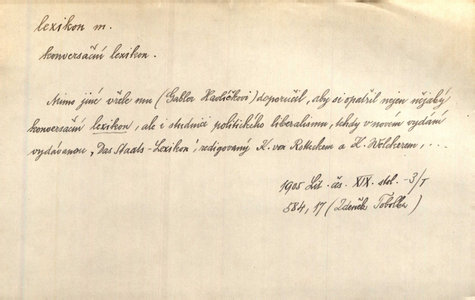 lexikon m.
konversační lexikon.
Mimo jiné vřele mu (Gabler Havlíčkovi) doporučil, aby si opatřil nejen nějaký
konversační lexikon, ale i studnici politického liberalismu, tehdy v novém vydání
vydávanou „Das Staats-Lexikon, redigovaný K. von Rotteckem a K. Welckerem, ...
1905 Lit. čes. XIX. stol. -3/I
584, 17 (Zdeněk Tobolka)